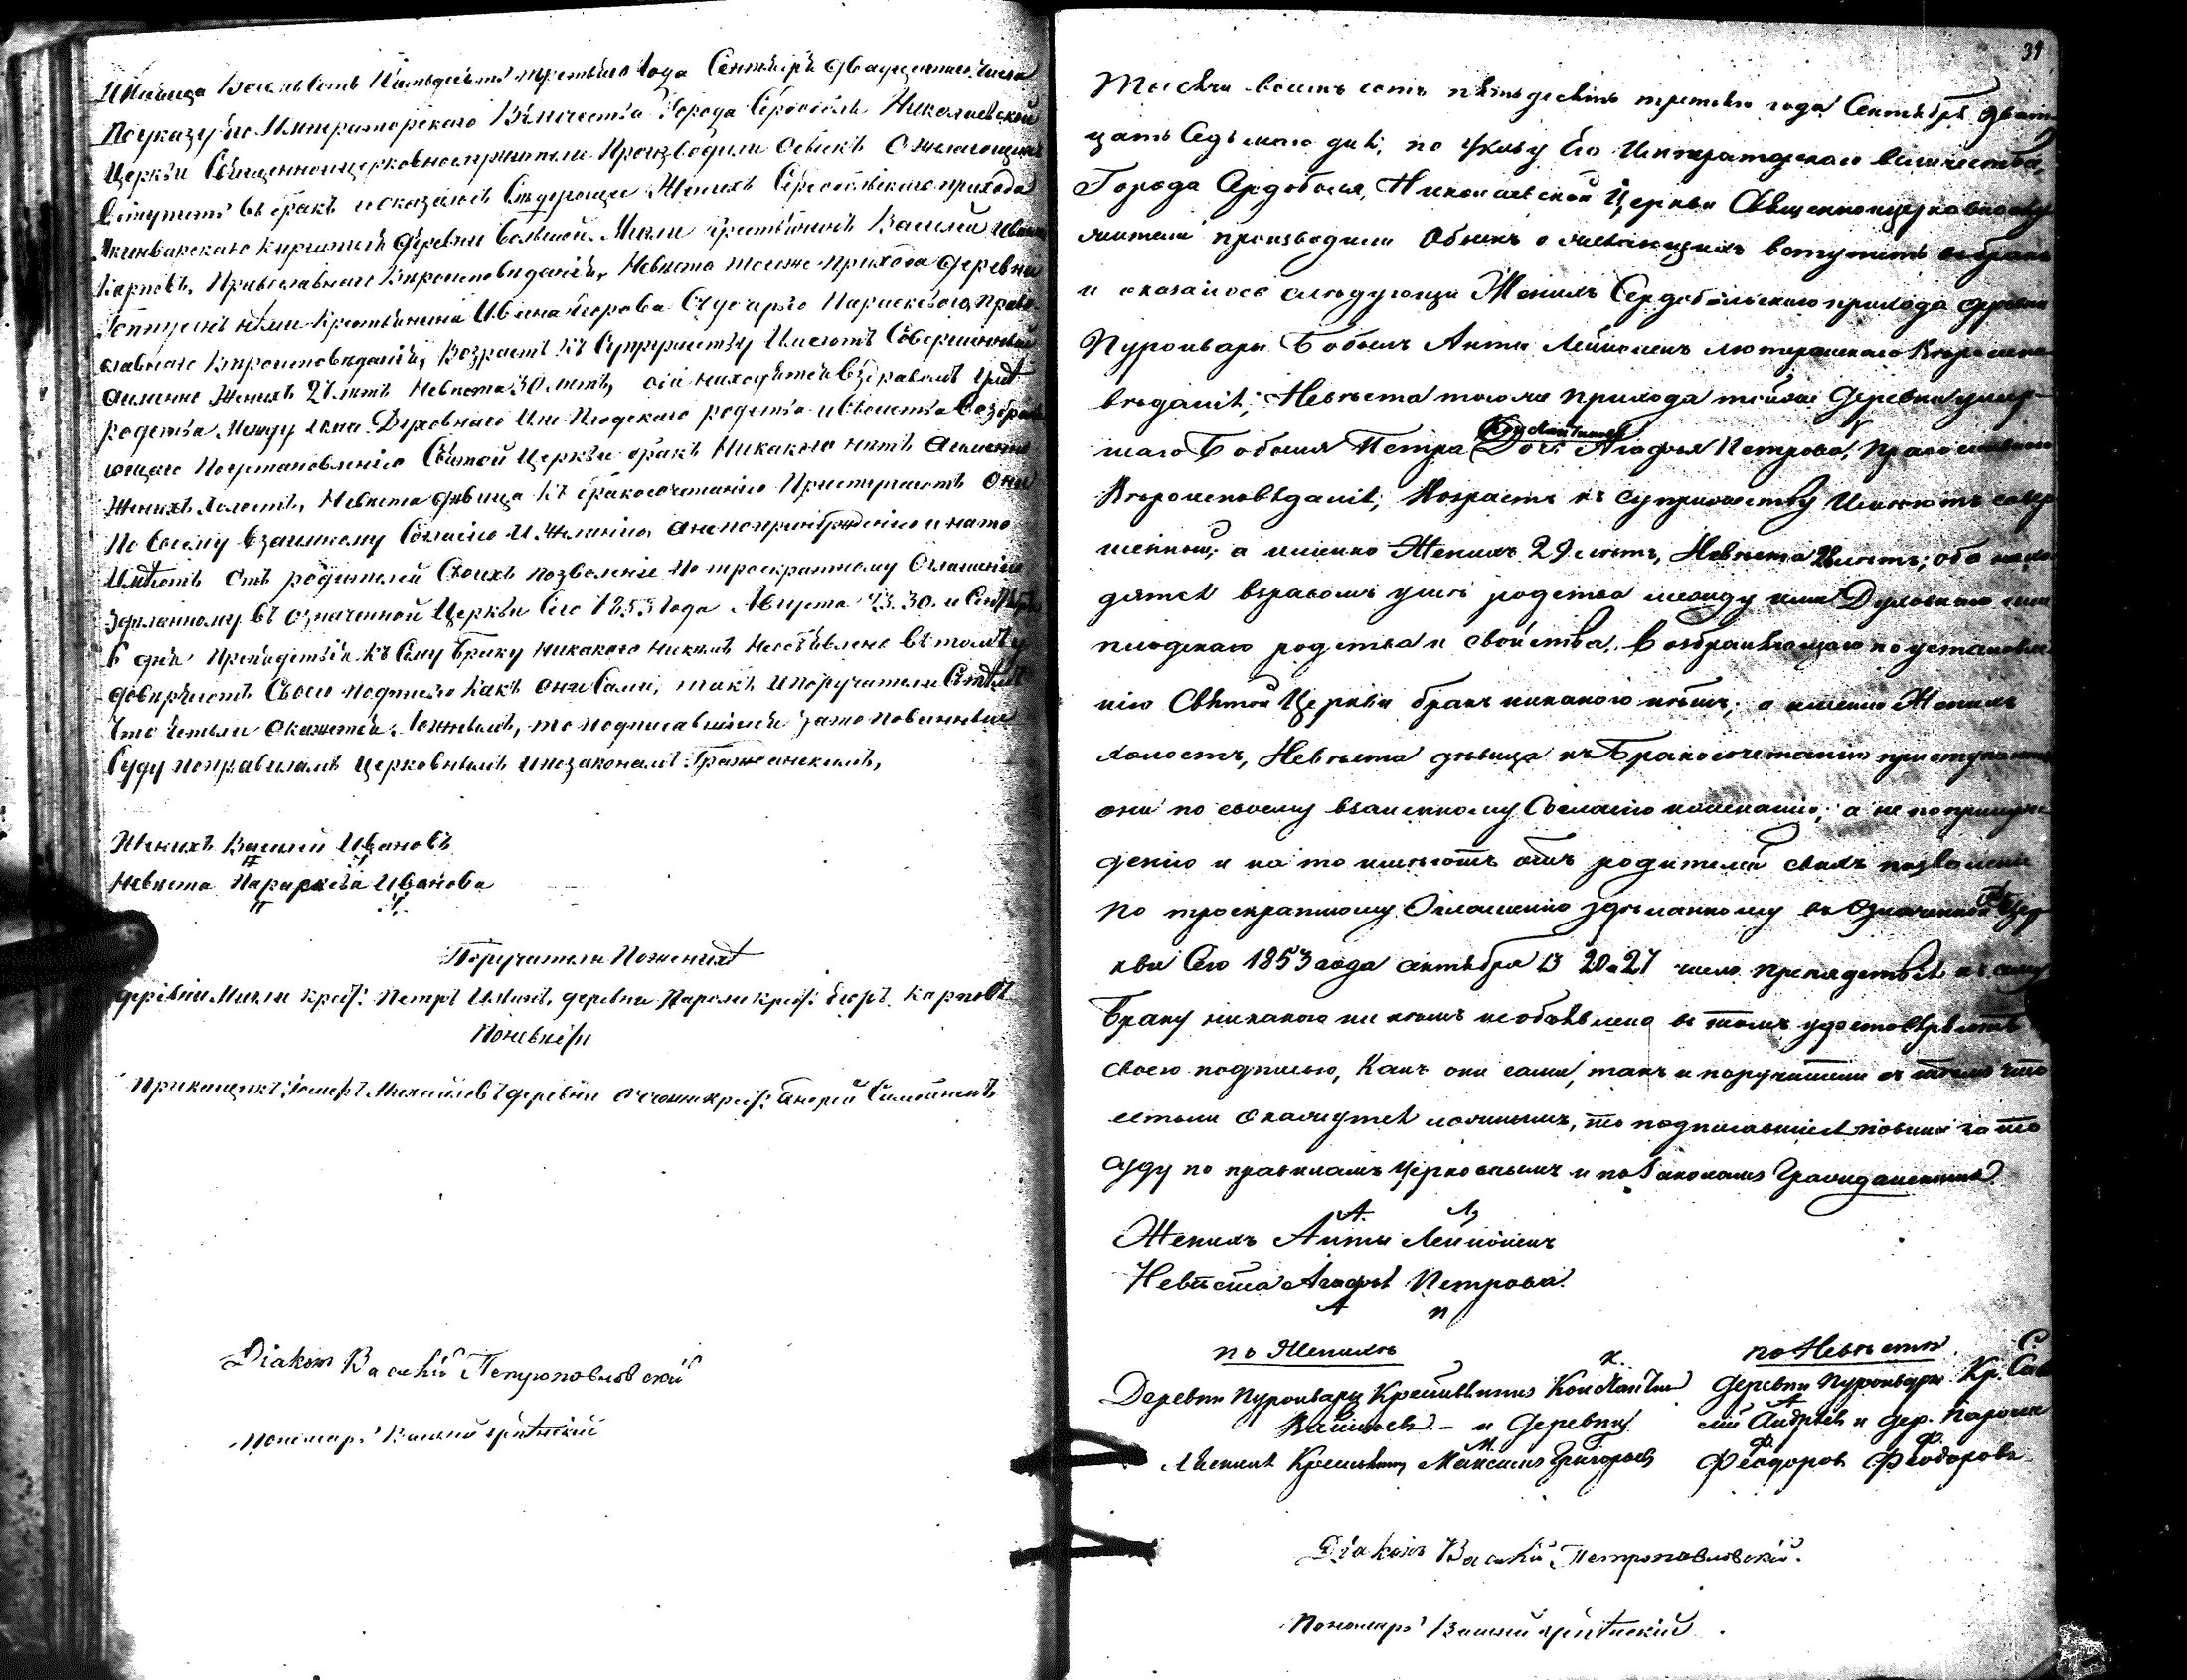 Тысяча Восемьсотъ Пятьдесятъ третьяго Года Сентября двадцатаго числа
По указу Его Императорскаго Величества Города Сердоболь Николаевской
Церкви Священноицерковнослужители Производили обыскъ о желающихъ
вступить въ бракъ и оказалось Следующее Женихъ Сердобольскаго прихода
деревни большой Мили крестьянинъ Василей Иванъ
Карповъ, Православнаго Вѣроисповѣданія, Невѣста тогоже прихода деревни
крестьянина Ивана Егорова дочь его Параскевія, Право
славнаго вѣроисповѣданія, возрастъ къ Супружеству Имеютъ Совершенный
аименно Женихъ 21 летъ Невѣста 30 летъ, оба находятся въ здравомъ умѣ
родства между ими Духовнаго Или Плодскаго родства и свойства возбраня
ющаго По установленію Святой Церкви бракъ Никакого нѣтъ аименно
Женихъ холостъ, Невѣста дѣвица къ бракосочетанію Приступаютъ Они
По Своему взаимному Согласію и желанію, а не по принужденію и на то
Имѣютъ Отъ родителей Своихъ позволеніе По троекратному Оглашенію
зделанному въ означенной Церкви Сего 1853 Года Августа 23. 30. и Сентября
6 дня Препядствія къ Сему Браку никакого никемъ Необъявлено въ томъ у
довѣряютъ Своею подписью какъ они Сами, такъ и поручатели Стемъ
Что естьли окажется Ложнымъ, то подписавшіеся зато повинны
Суду поправиламъ церковнымъ и позаконамъ Гражданскимъ,
Женихъ Василей Ивановъ
Невѣста Параскевія Иванова
Поручатели Поженихѣ
деревни Мили крест: Петръ деревни Пароли крест: Егоръ Карповъ
Поневѣстѣ
Прикащикъ Іосифъ Михайловъ деревни крест: Андрей
Діаконъ Василій Петропавловскій
Пономарь Василій
31
Тысяча восемь сотъ пятьдесятъ третьяго года Сентября дват
цать Седьмаго дня; по указу Его Императорскаго величества,
Города Сердоболя, Николаевской Церкви Священноицерковнослу
жители производили Обыскъ о желающихъ вступить въ бракъ
и оказалось следующее Женихъ Сердобольскаго прихода деревни
Пуроивары Бобыль Анти Лейноненъ лютеранскаго Вѣроиспо
вѣданія; Невѣста тогоже прихода тойже Деревни умер
шаго Бобыля Петра Константинова Дочь Агафья Петрова, Православнаго
Вѣроисповѣданія; Возрастъ къ супружеству Имеютъ совер
шенный; а именно Женихъ 29 летъ, Невѣста летъ; оба нахо
дятся въздравомъ умѣ родства между ими Духовнаго или
плодскаго родства и свойства, возбраняющаго по установле
нію Святой Церкви бракъ никакого нѣтъ; а именно Женихъ
холостъ, Невѣста дѣвица къ Бракосочетанію приступаютъ
они по своему взаимному Согласію и желанію; а не по принуж
денію и на то имѣютъ отъ родителей своихъ позволеніе
По троекратному Оглашенію зделанному въ Означенной Цер
кви Сего 1853 года сентября 13 20 и 27 число препядствія къ сему
Браку никакого ни кемъ необъявлено въ томъ удостовѣряютъ
своею подписью, Какъ они сами, такъ и поручители съ темъ что
естьли окажутся ложнымъ, то подписавшіеся повинны за то
суду по правиламъ Церковнымъ и по Законамъ Гражданскимъ.
А. Л.
Женихъ Анти Лейноненъ
Невѣста Агафья Петрова
А П
по Женихѣ по Невѣсте
Деревни Пуроивары Крестьянинъ Константинъ деревни Пуроивары Кр. Саве
Васильевъ – и Деревни лій Андреевъ и дер. Пароли
Крестьянинъ Максимъ Григорьевъ Феодоровъ Феодорова
Діаконъ Василій Петропавловскій.
Пономарь Василій